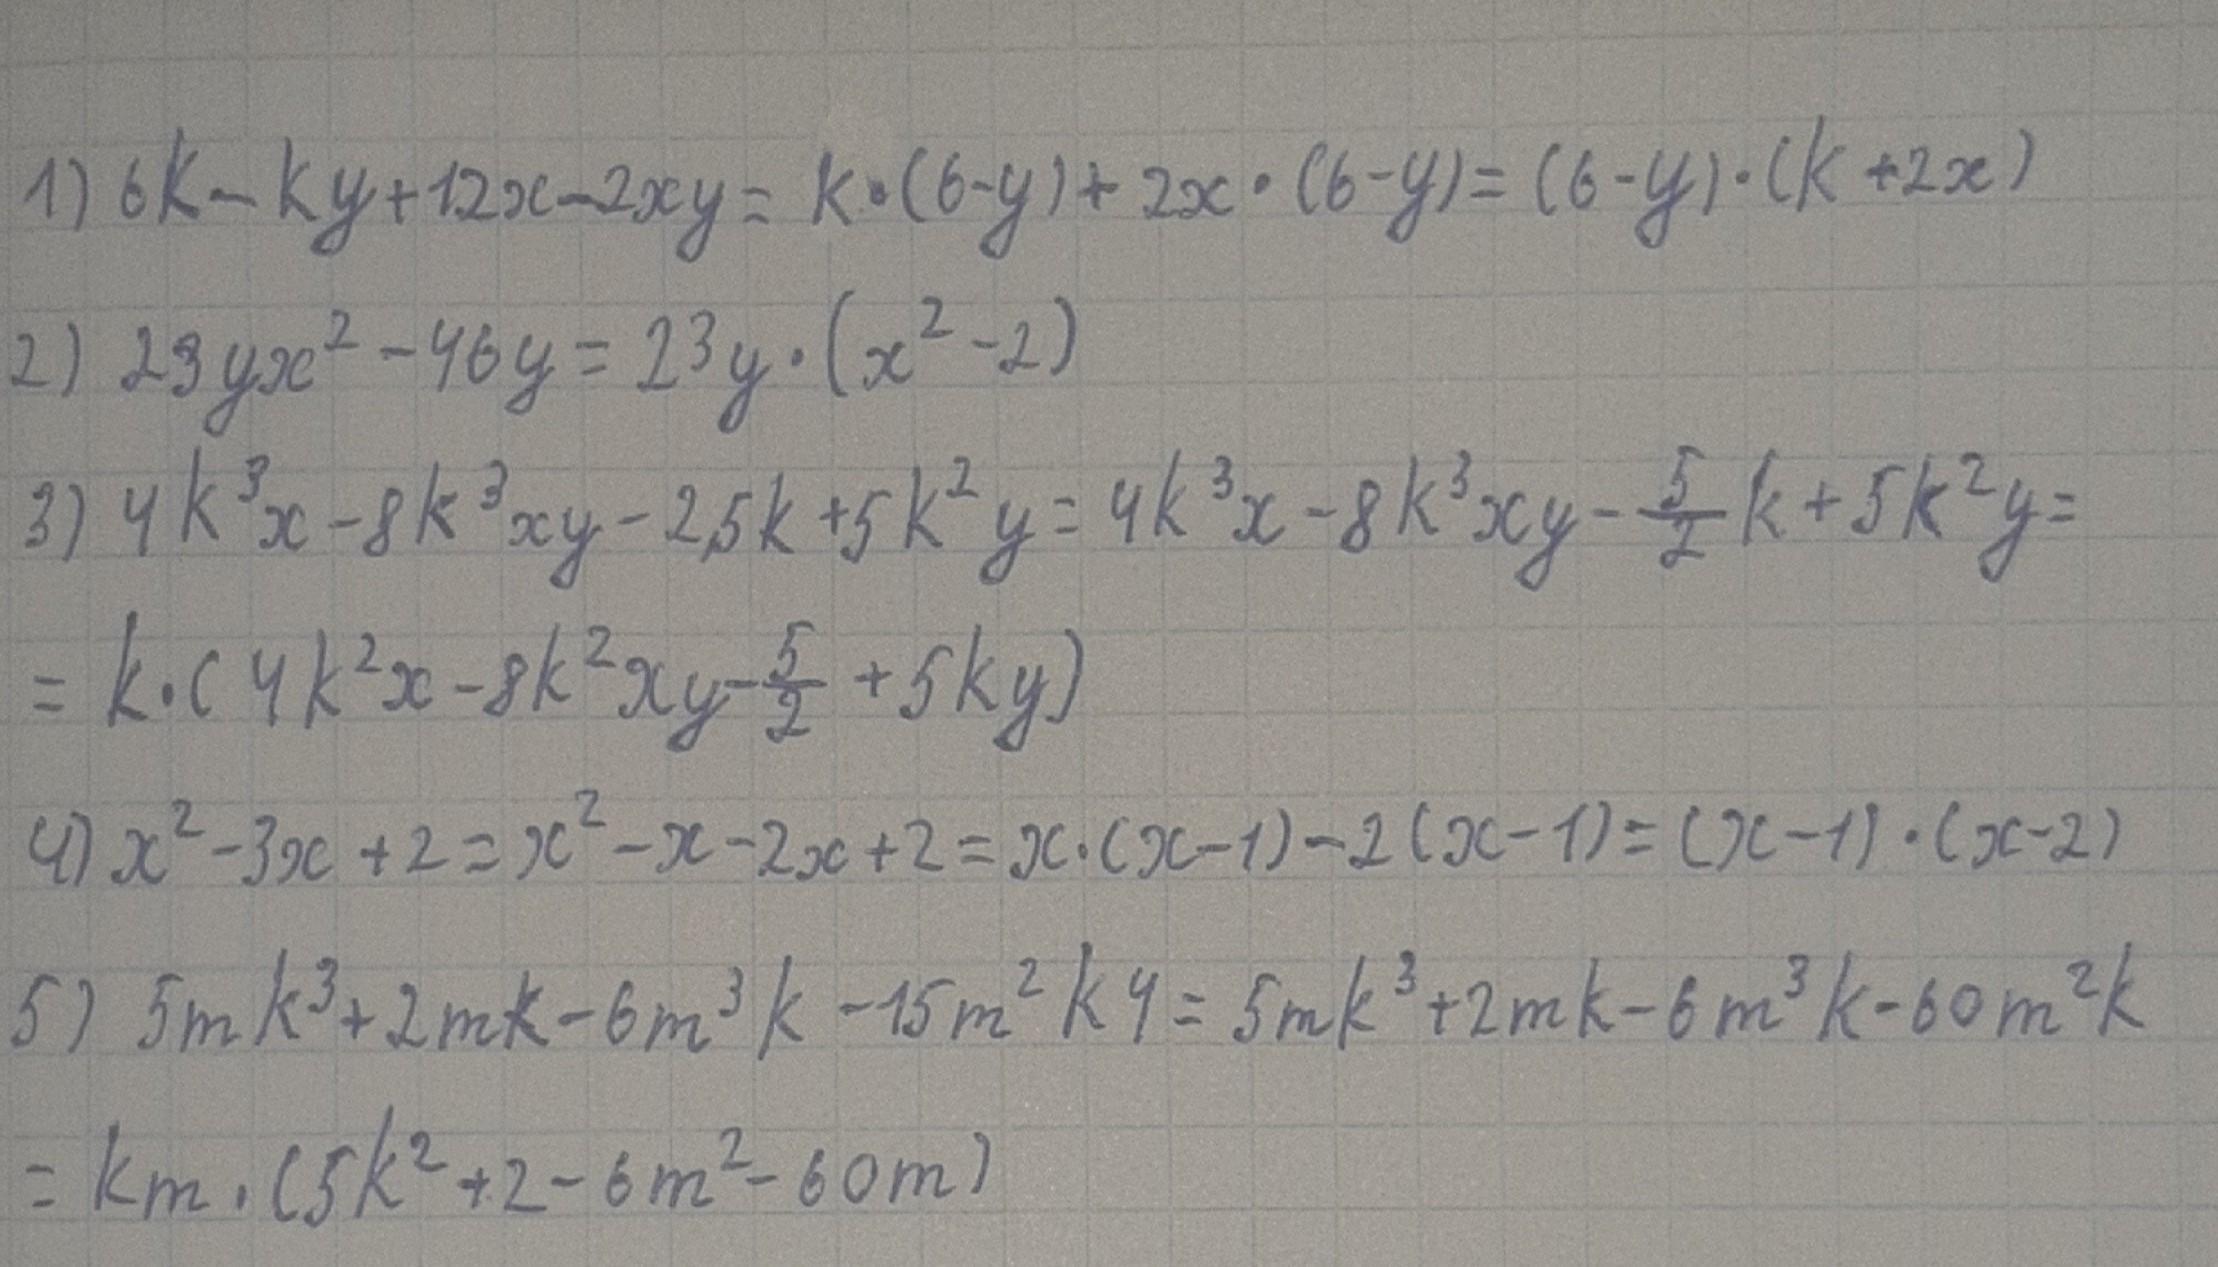 1) 6k-ky+12x-2xy= k•(6-y)+ 2x•(6-y)= (6-y)•(k+2x)
2) 23yx²-46y=23y•(x²-2)
3) 4k³x-8k³xy-2,5k+5k²y=4k³x-8k³xy-5/2k+5k²y=
= k•(4k²x-8k²xy-5/2+5ky)
4) x²-3x+2=x²-x-2x+2=x•(x-1)-2(x-1)=(x-1)•(x-2)
5) 5mk³+2mk-6m³k-15m²k4=5mk³+2mk-6m³k-60m²k
= km•(5k²+2-6m²-60m)